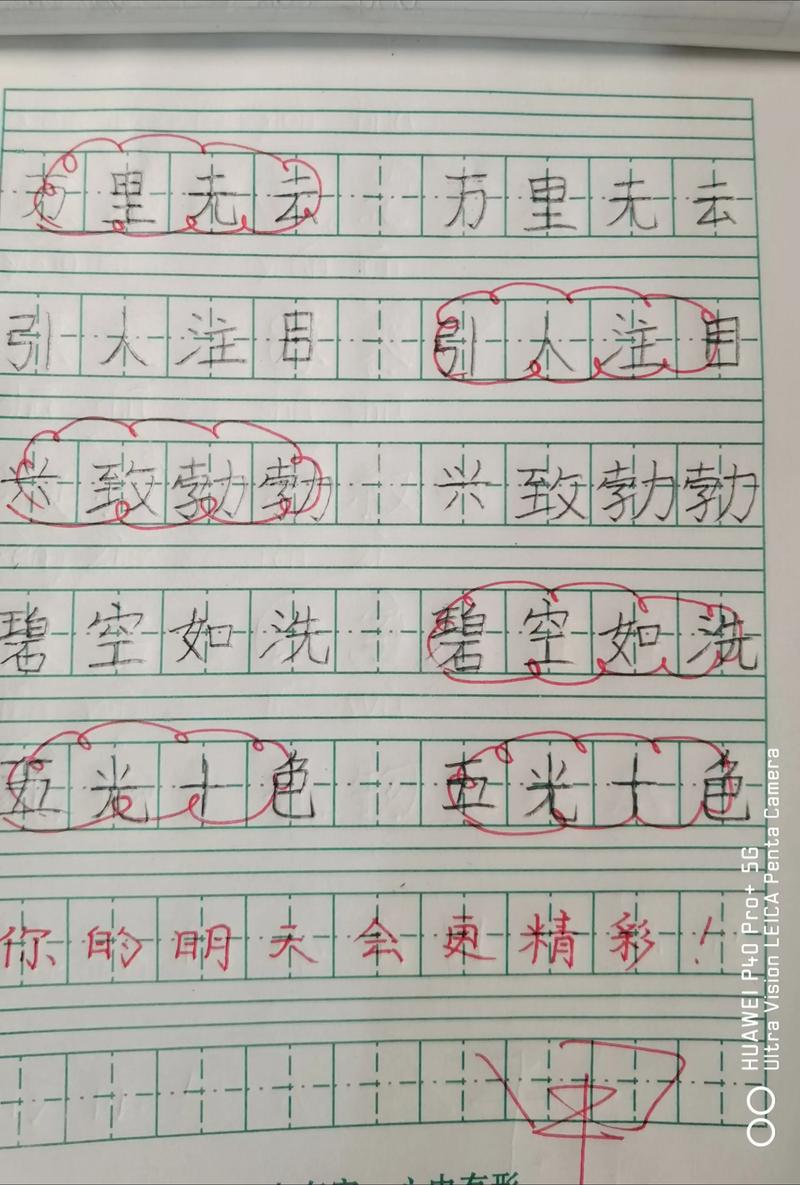 万里无云 万里无云
引人注目 引人注目
兴致勃勃 兴致勃勃
碧空如洗 碧空如洗
五光十色 五光十色
你的明天会更精彩！
HUAWEI P40 Pro+ 5G
Ultra Vision LEICA Penta Camera